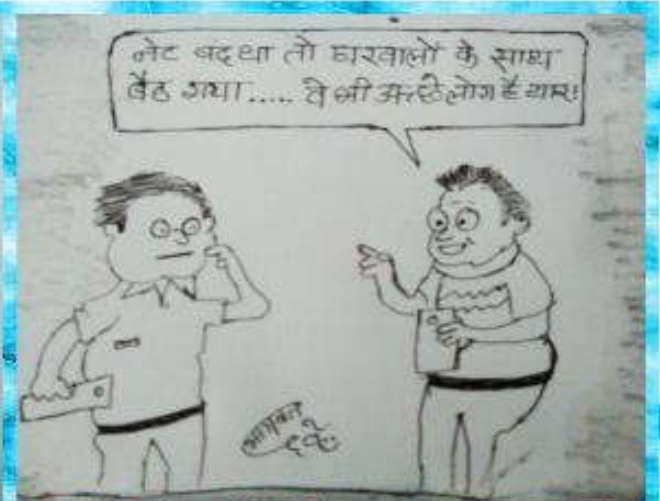 नेट बंद था तो घरवालों के साथ
बैठ गया..... वे भी अच्छे लोग है यार!
भागवत